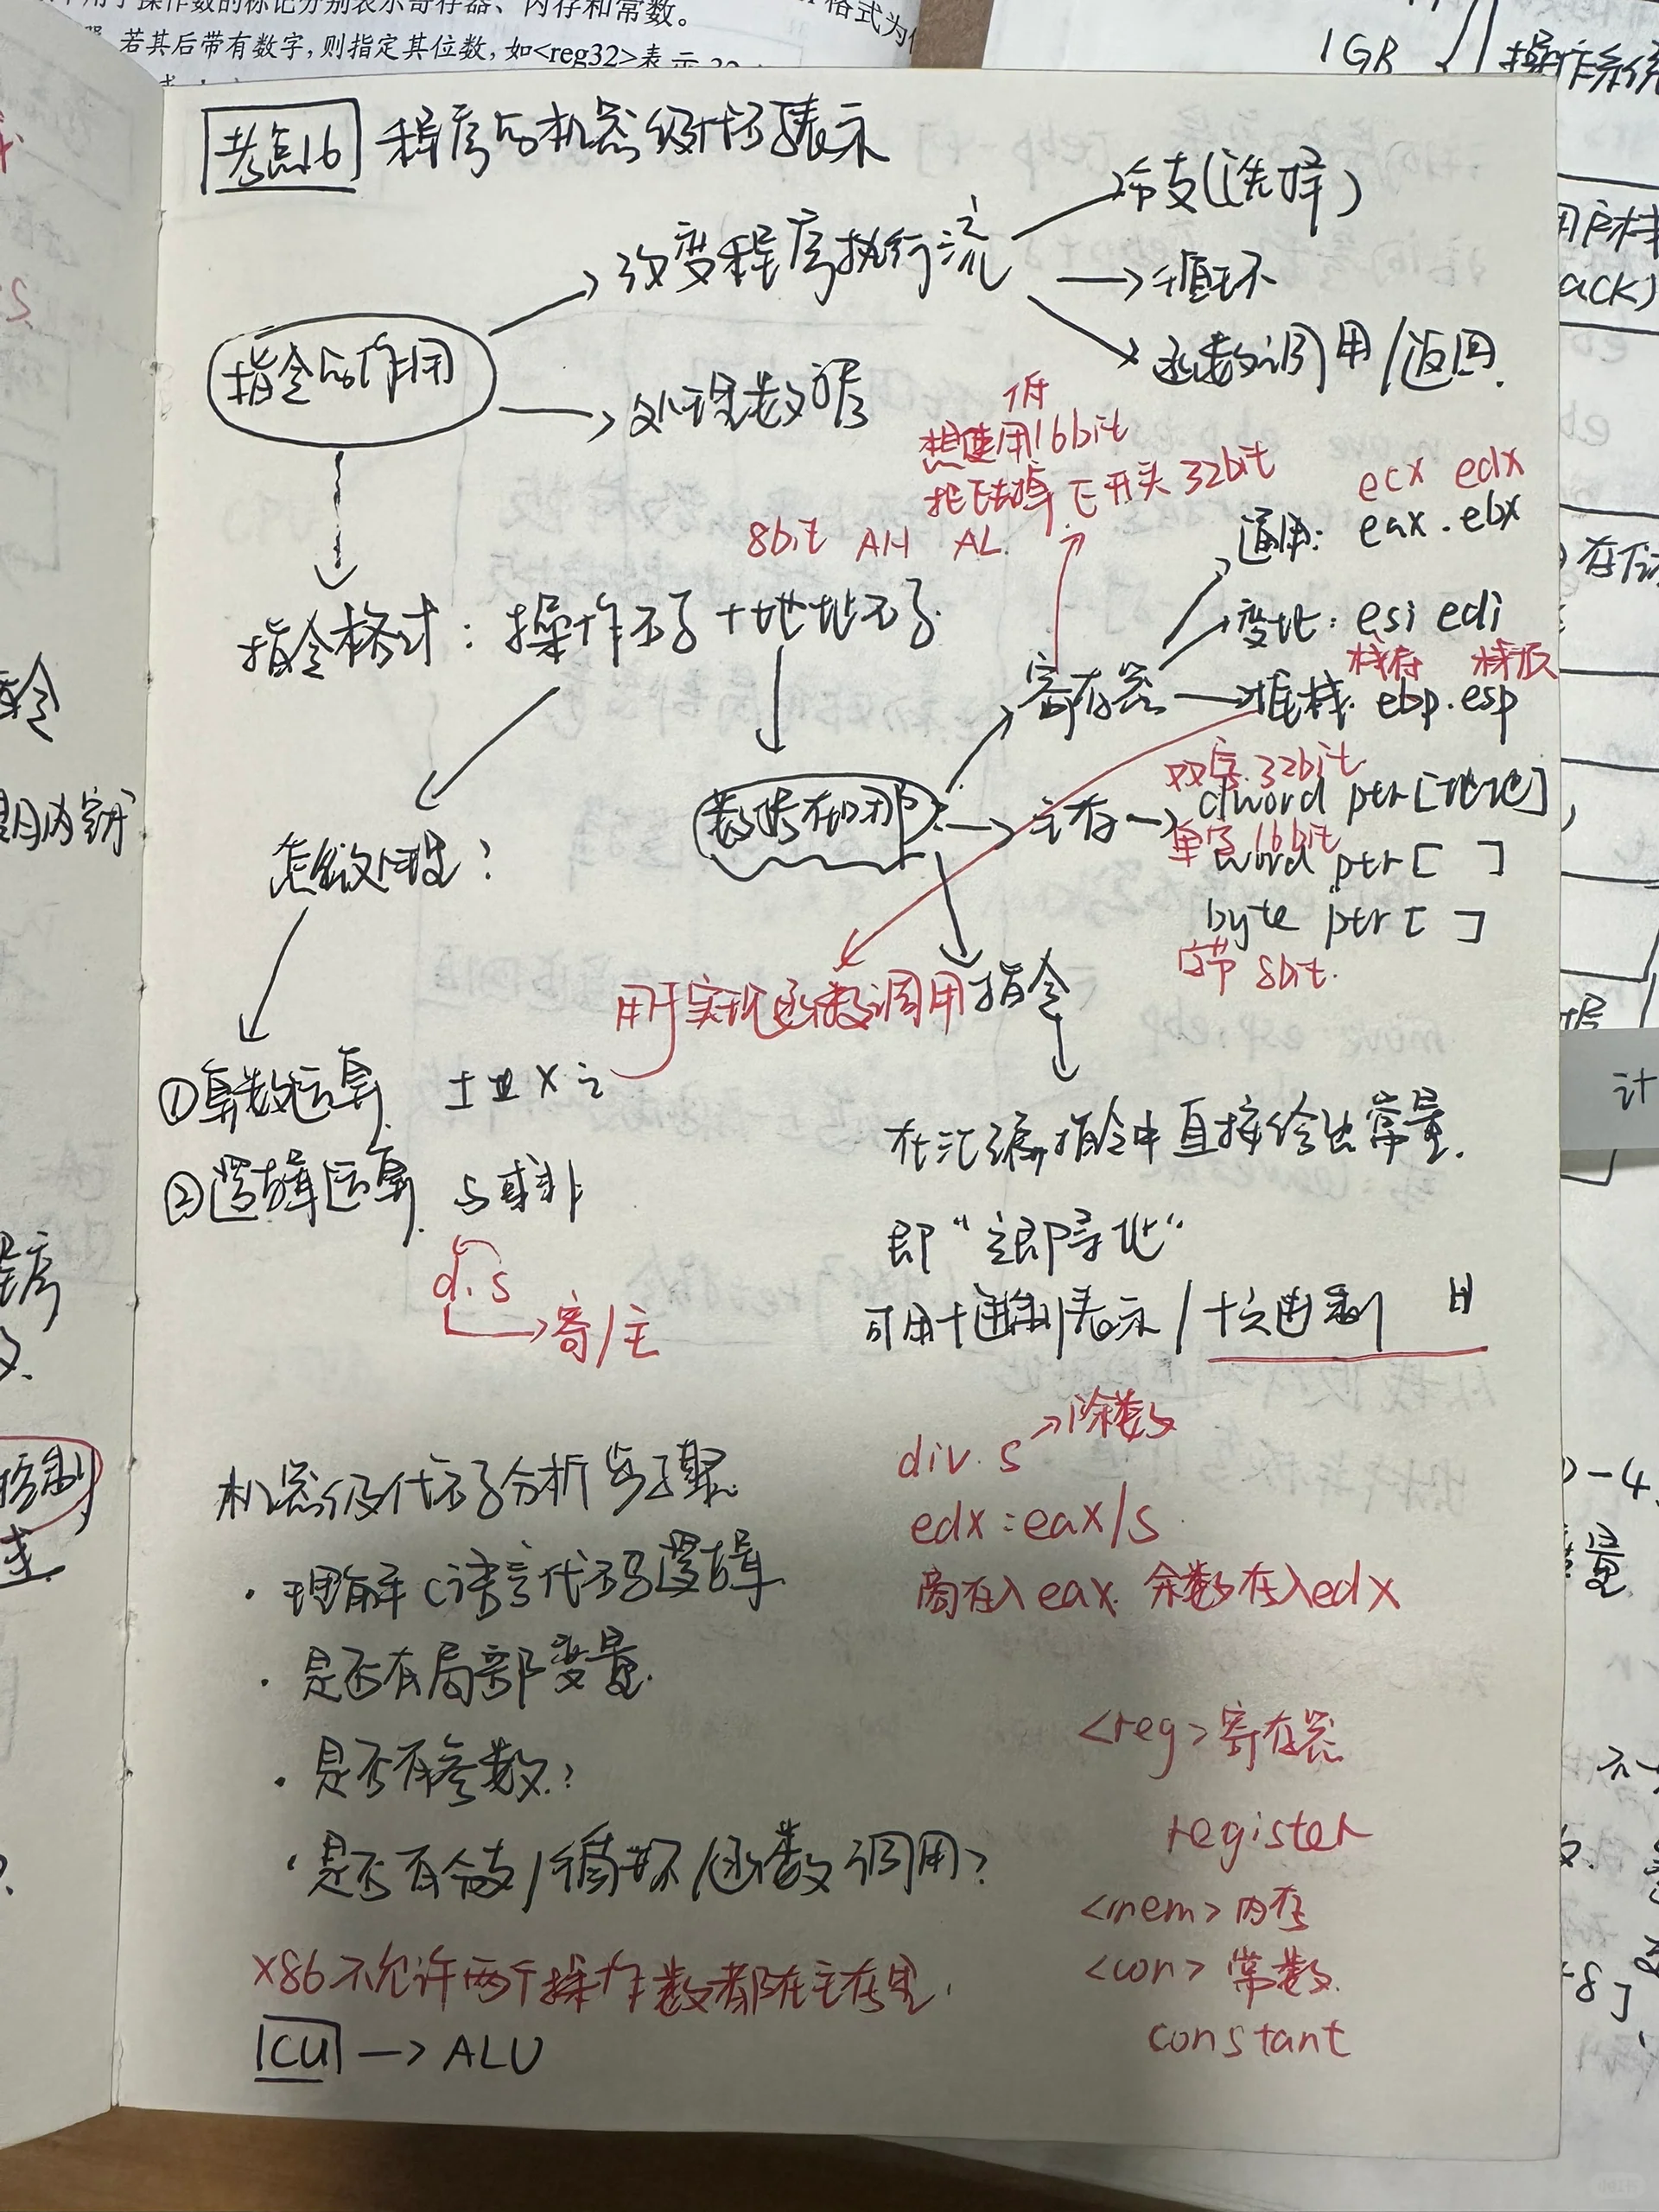 用于操作数的标记分别表示寄存器、内存和常数。
格式为
若其后带有数字，则指定其位数，如<reg32>表示32
1GB
操作系统
考点16 程序的机器级代码表示
指令的作用
改变程序执行流
分支(选择)
循环
函数调用/返回.
处理数据
低
想使用16bit
把E去掉 E开头 32bit
8bit AH AL.
ecx edx
通用: eax.ebx
变址: esi edi
栈底 栈顶
寄存器
堆栈. ebp.esp
指令格式: 操作码+地址码
数据在哪
主存
双字.32bit
dword ptr[地址]
单字16bit
word ptr[ ]
byte ptr[ ]
字节 8bit.
怎么处理?
用于实现函数调用
指令
①算数运算. 士 X
②逻辑运算. 与或非
d.s
寄/主
在汇编指令中直接给出常量.
即“立即寻址”
可用十进制表示/十六进制 H
div. s
除数
edx:eax/s
商存入eax. 余数存入edx
机器级代码分析步骤
· 理解C语言代码逻辑
· 是否有局部变量.
· 是否有参数.?
· 是否有分支/循环/函数调用?
<reg>寄存器
register
<mem>内存
<con>常数.
constant
x86不允许两个操作数都在主存里.
CU → ALU